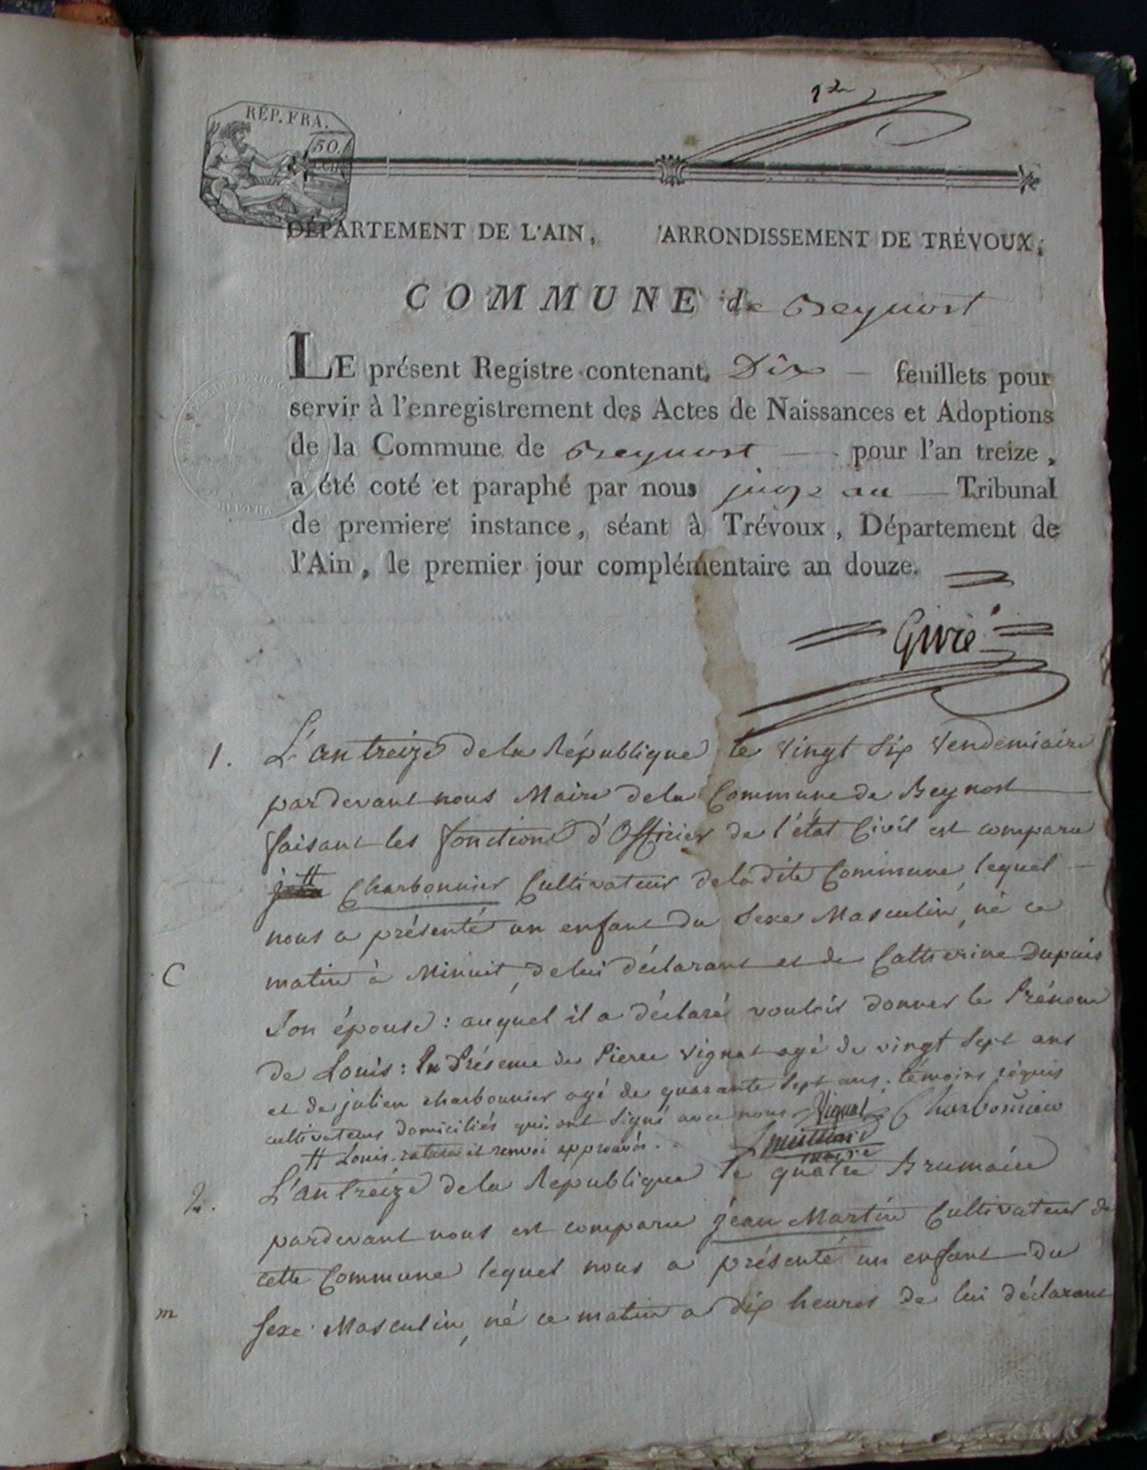 1er
RÉP. FRA.
50.
DÉPARTEMENT DE L'AIN, ARRONDISSEMENT DE TRÉVOUX,
COMMUNE de Beynost
LE présent Registre contenant Dix feuillets pour
servir à l'enregistrement des Actes de Naissances et Adoptions
de la Commune de Beynost pour l'an treize,
a été coté et paraphé par nous juge au Tribunal
de premiere instance, séant à Trévoux, Département de
l'Ain, le premier jour complémentaire an douze.
1. L'an treize de la République le vingt six vendemiaire
pardevant nous Maire de la Commune de Beynost
faisant les fonctions d'Officier de l'état Civil est comparu
jean # Charbonnier Cultivateur de la dite Commune, lequel
nous a présenté un enfant du Sexe Masculin, né ce
C
matin à Minuit, de lui déclarant et de Catherine Dupuis
Son épouse: auquel il a déclaré vouloir donner le Prénom
de Louis: En Présence de Pierre Vignat agé de vingt Sept ans
et de julien charbonnier agé de quarante Sept ans. témoins réquis
cultivateurs domiciliés qui ont Signé avec nous Vignat Charbonnier
# Louis. rature et renvoi approuvés. maire
2. L'an treize de la Republique le quatre Brumaire
pardevant nous est comparu jean Martin Cultivateur de
cette Commune lequel nous a présenté un enfant du
m
Sexe Masculin, né ce matin a dix heures de lui déclarant